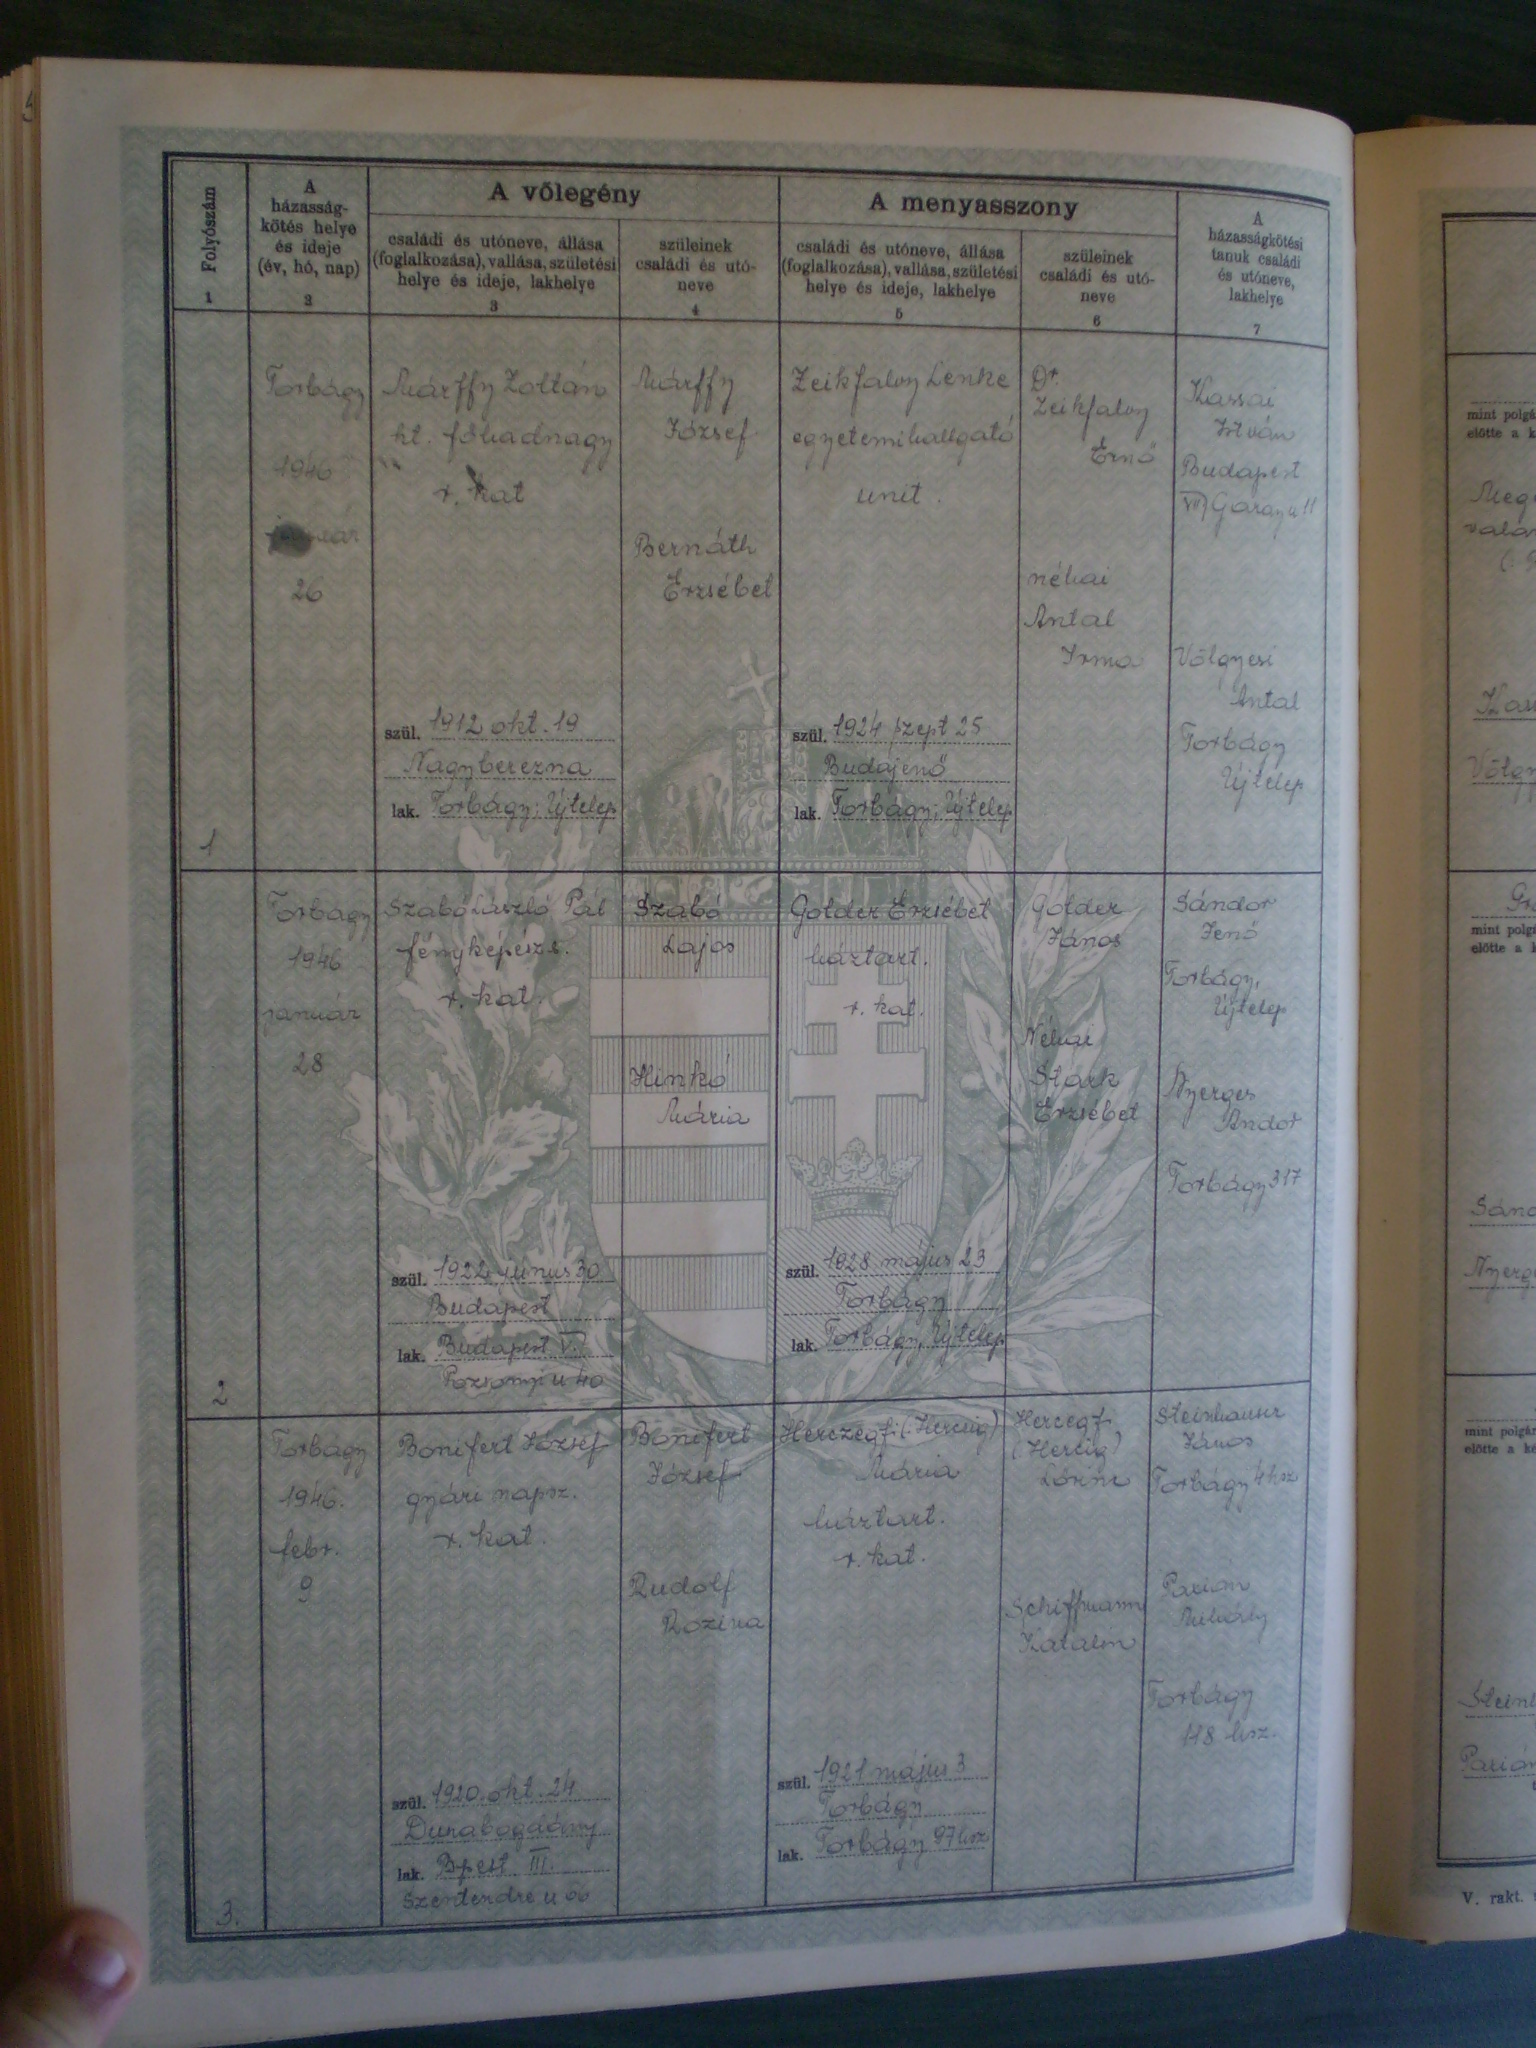 A vőlegény
A menyasszony
Folyószám
1
A
házasság-
kötés helye
és ideje
(év, hó, nap)
2
családi és utóneve, állása
(foglalkozása), vallása, születési
helye és ideje, lakhelye
3
szüleinek
családi és utó-
neve
4
családi és utóneve, állása
(foglalkozása), vallása, születési
helye és ideje, lakhelye
5
szüleinek
családi és utó-
neve
6
A
házasságkötési
tanuk családi
és utóneve,
lakhelye
7
1
Torbágy
1946
január
26
Márffy Zoltán
ht. főhadnagy
r. kat
szül. 1912 okt. 19
Nagyberezna
lak. Torbágy; Újtelep
Márffy
József
Bernáth
Erzsébet
Zeikfalvy Lenke
egyetemi hallgató
unit.
szül. 1924 szept 25
Budajenő
lak. Torbágy; Újtelep
Dr.
Zeikfalvy
Ernő
néhai
Antal
Irma
Kassai
István
Budapest
VII Garay u 11
Völgyesi
Antal
Torbágy
Újtelep
2
Torbágy
1946
január
28
Szabó László Pál
fényképész s.
r. kat.
szül. 1922 junus 30
Budapest
lak. Budapest V.
Pozsonyi u 40
Szabó
Lajos
Hinkó
Mária
Golder Erzsébet
háztart.
r. kat.
szül. 1928 május 23
Torbágy
lak. Torbágy, Újtelep
Golder
János
Néhai
Stark
Erzsébet
Sándor
Jenő
Torbágy,
Újtelep
Nyerges
Andor
Torbágy 317
3.
Torbágy
1946.
febr.
9
Bonifert József
gyári napsz.
r. kat.
szül. 1920. okt. 24
Dunabogdány
lak. Bpest III.
Szentendrei u 66
Bonifert
József
Rudolf
Rozina
Herczegfi (: Herczig)
Mária
háztart.
r. kat.
szül. 1921 május 3
Torbágy
lak. Torbágy 97 hsz.
Hercegf.
(Hercig)
Lőrinc
Schiffmann
Katalin
Steinhauser
János
Torbágy 4 hsz
Parian
Mihály
Torbágy
118 hsz.
mint polgá
előtte a k
Meg
Völgy
mint polgá
előtte a k
Sánd
Nyerg
mint polgár
előtte a ké
Steinl
Parián
V. rakt.